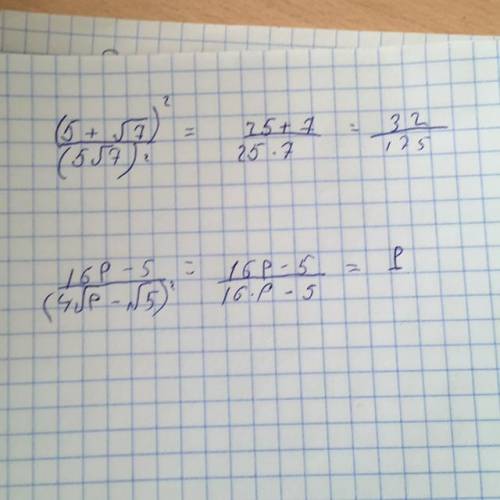 (5 + √7)² / (5√7)² = 25 + 7 / 25 · 7 = 32 / 175
16p - 5 / (4√p - √5)² = 16p - 5 / 16 · p - 5 = 1